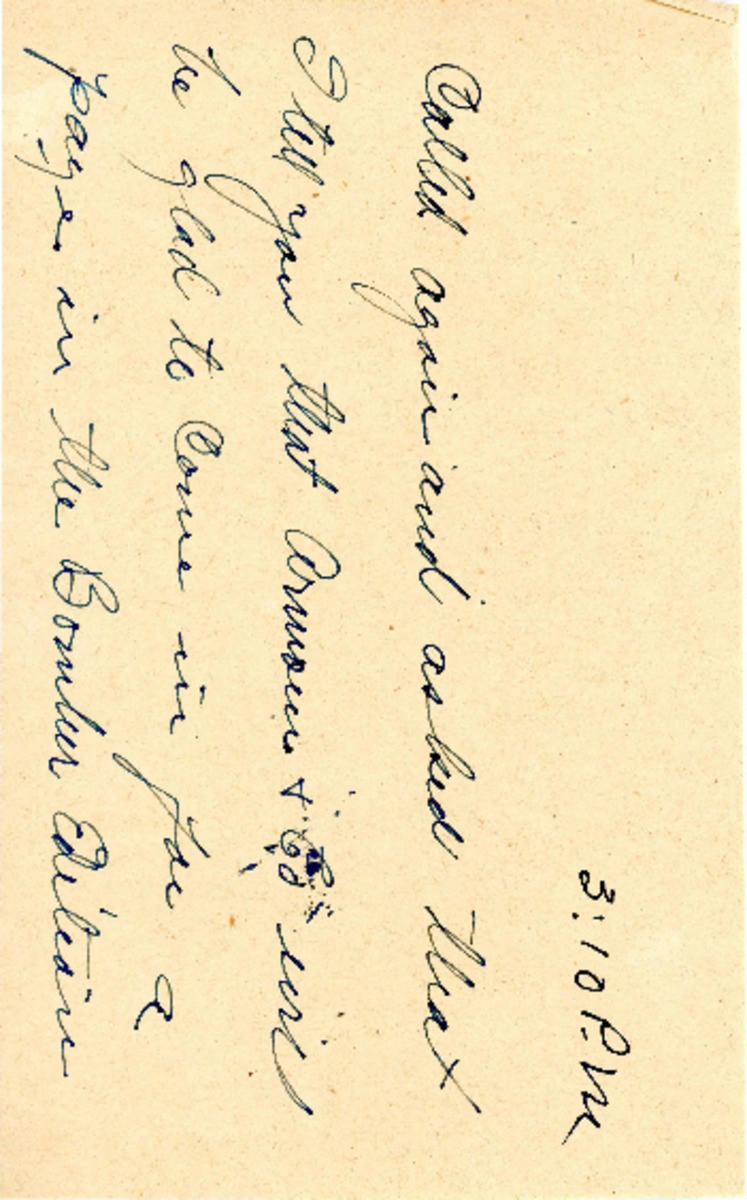 3:10 P.M
Called again and asked that
I tell you that Armour & Co will
be glad to come in for a
page in the Bomber Edition